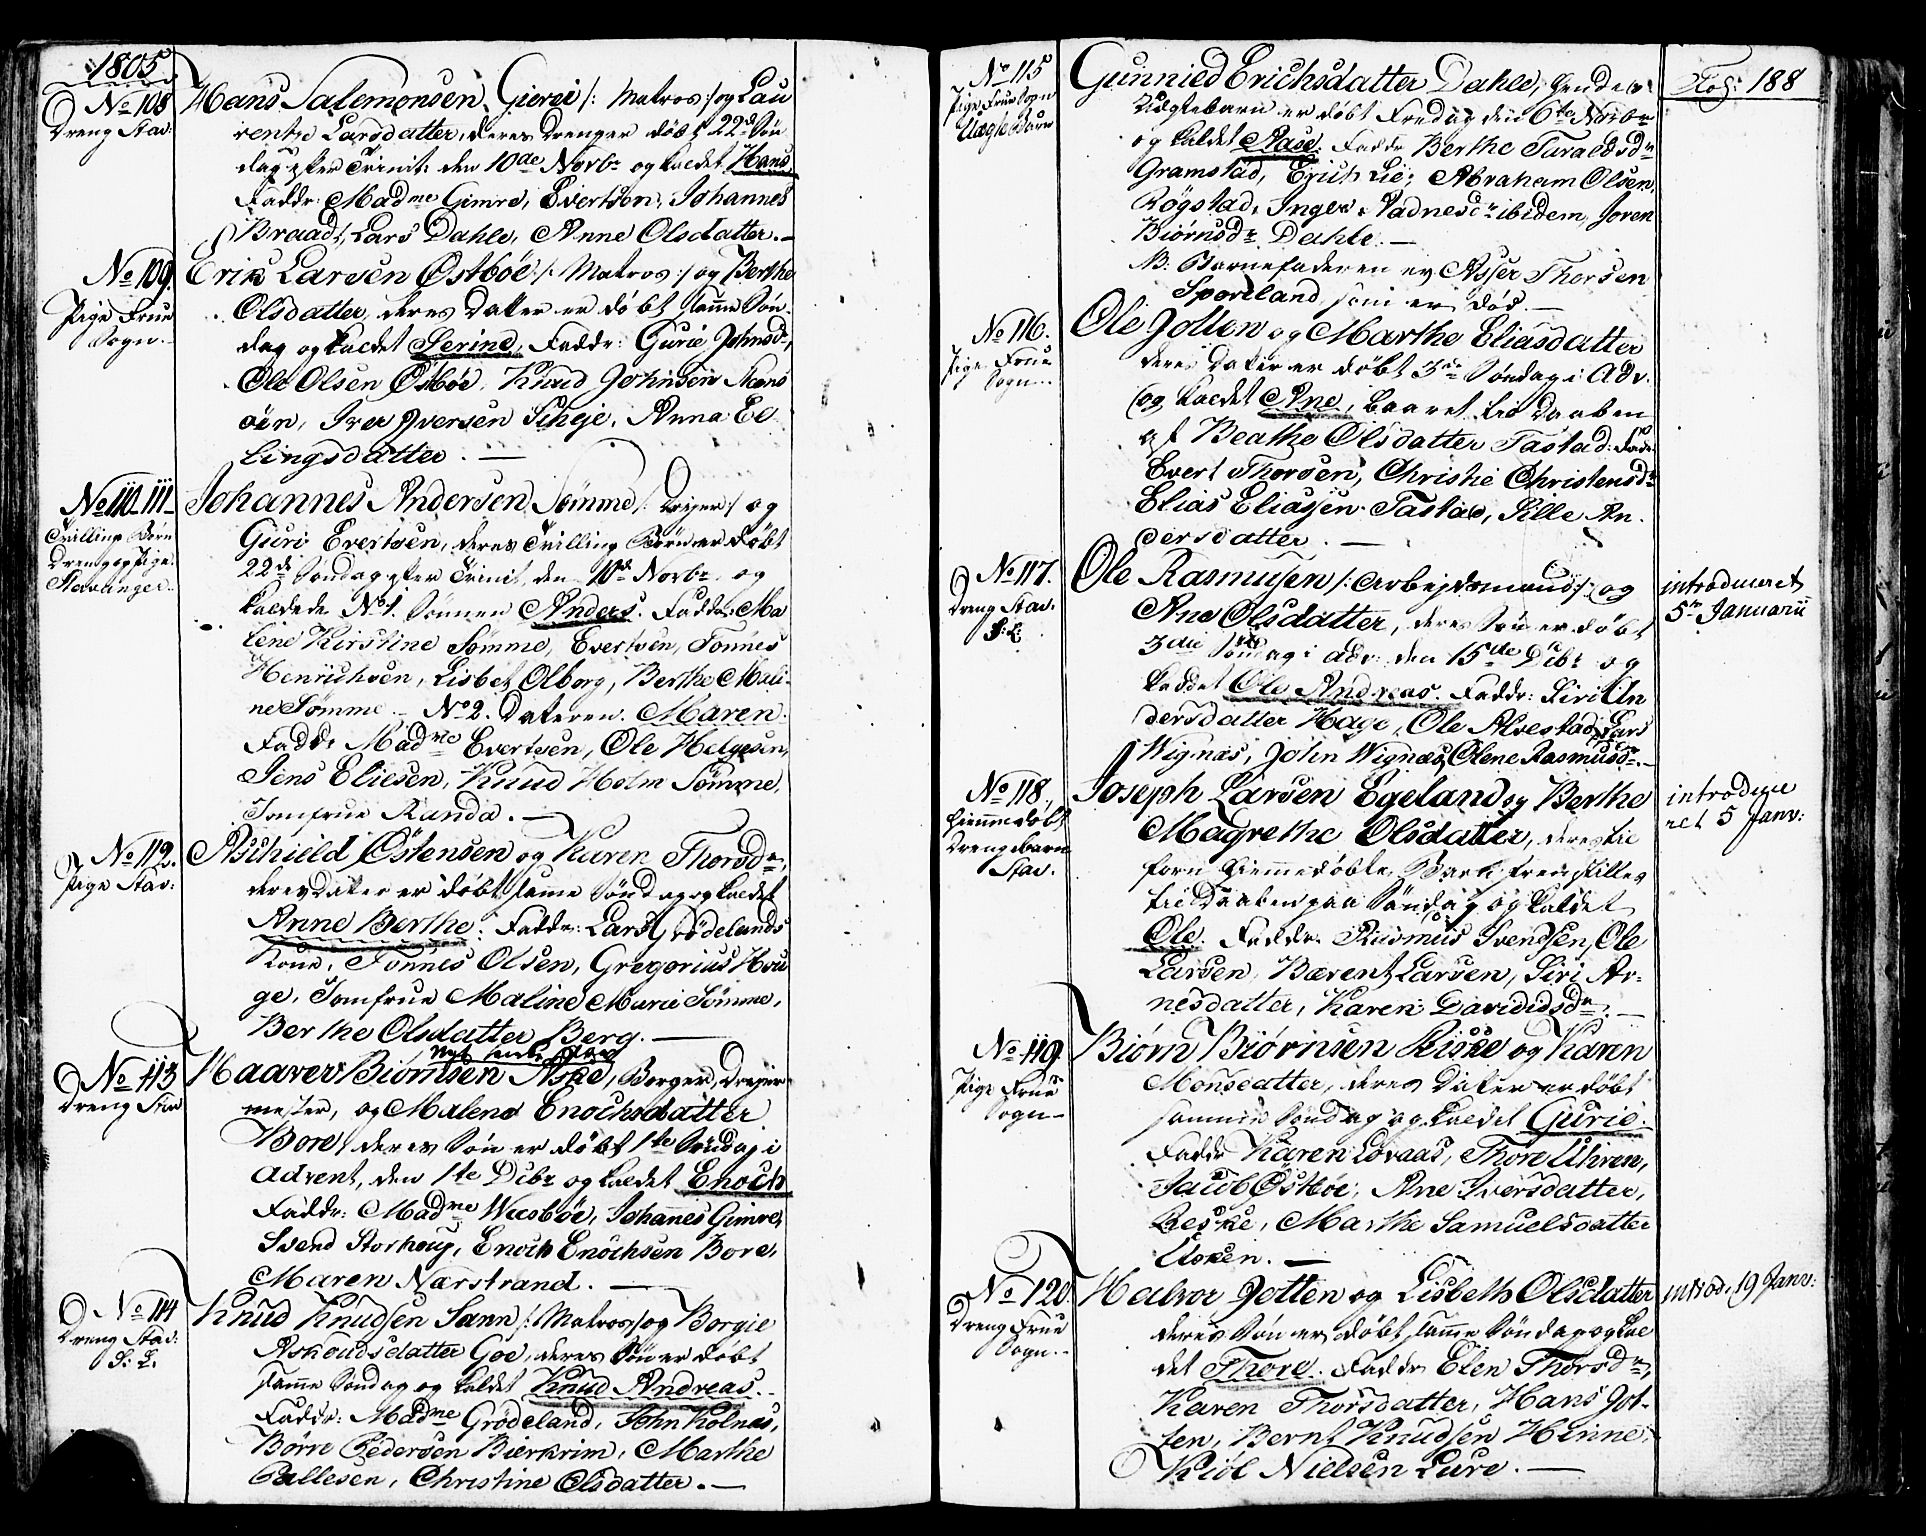 1805
No 108
Dreng Stav:
Hans Salemonsen Gierei /: Matros :/ og Lau
rentze Larsdatter, deres Drenge er døbt 22de Søn
dag efter Trinit: den 10de Novbr og kaldet Hans.
Faddr: Madme Gimre, Evertsen, Johannes
Braadt, Lars Dahle, Anne Olsdatter. —
No 109.
Pige Frue
Sogn.
Erik Larsen Østbøe /: Matros :/ og Berthe
Olsdatter, deres Datter er døbt samme Søn-
dag og kaldet Serine, Faddr: Gurie Johnsd.,
Ole Olsen Østbøe, Knud Johnsen
øen, Iver Iversen Tihje, Anna El
lingsdatter. —
No 110-111
Tvilling Børn
Dreng og Pige.
Stavanger.
Johannes Andersen Sømme /: Drejer :/ og
Guri Evertsen, deres Tvilling Børn er døbt
22de Søndag efter Trinit. den 10de Novbr. og
kaldede No 1. Sønnen Anders. Faddr: Ma
lene Kirstine Sømme, Evertsen, Tønnes
Henrichsen, Lisbet Olborg, Berthe Mali-
ne Sømme — No 2. Datteren. Maren.
Faddr Madme Evertsen, Ole Helgesen,
Jens Eliesen, Knud Holm Sømme,
Jomfrue Randa. —
No 112.
Pige Stav:
Aschield Østensen og Karen Thorsdr,
deres Datter er døbt samme Søndag og kaldet
Anne Berthe. Faddr: Lars Grødelands
Kone, Tønnes Olsen, Gregorius Hou
ge, Jomfrue Maline Marie Sømme,
Berthe Olsdatter Berg. —
No 113
Dreng Stav
Haaver Biørnsen Aske, Borger, Drejer
mester, og Malene Enochsdatter
Bore, deres Søn er døbt 1te Søndag i
Advent, den 1te Debr og kaldet Enoch
Faddr: Madme Wasbøe, Johannes Gimre,
Svend Storhoug, Enoch Enochsen Bore,
Maren Nærstrand. —
No 114
Dreng Stav:
S: L.
Knud Knudsen Sann /: Matros :/ og Borgie
Askoudsdatter Goe, deres Søn er døbt
samme Søndag og kaldet Knud Andreas.
Faddr: Madme Grödeland, John Kolnes,
Børre Pedersen Bierkrim, Marthe
Pallesen, Christine Olsdatter. —
No 115
Pige Frue Sogn
Uægte Barn
Gunnied Erichsdatter Dahle, hendes
Uægte barn er døbt Fredag den 6te Novbr
og kaldet Aase. Faddr Berthe Taraldsdr
Gramstad, Erich Lie, Abraham Olsen
Røgstad, Inger Aadnesdr ibidem, Joren
Biørnsdr Dahle. —
NB: Barnefaderen er Asser Thorsen
Sporeland, som er død. —
Fol: 188
No 116.
Pige Frue
Sogn.
Ole Jotten og Marthe Eliasdatter
deres Datter er døbt 3de Søndag i Adv.
og kaldet Ane, baaret til Daaben
af Beathe Olsdatter Tastad: Faddr
Evert Thorsen, Christie Christensdr
Elias Eliassen Tastad, Sille An-
dersdatter. —
No 117.
Dreng Stav:
S: L:
Ole Rasmusen /: Arbejdsmand :/ og
Ane Olsdatter, deres Søn er døbt
3die Søndag i Adv: den 15de Debr og
kaldet Ole Andreas. Faddr: Siri An
dersdatter Hage, Ole Alvestad, Lars
Wignæs, John Wignæs, Olene Rasmusdr. —
introduceret
5te Januarii
No 118,
hiemmedøbt
Drengebarn
Stav.
Joseph Larsen Egeland og Berthe
Magrethe Olsdatter, deres til
forn hiemmedøbte Barn fremstilles
til Daaben paa Søndag og kaldet
Ole. Faddr. Rasmus Svendsen, Ole
Larsen, Bærent Larsen, Siri Ar-
nesdatter, Karen Davididsdr. —
introduce
ret 5 Janv:
No 119.
Pige Frue
Sogn
Biørn Biørnsen Riske og Karen
Monsdatter, deres Datter er døbt
samme Søndag og kaldet Gurie.
Faddr Karen Lovaas, Thore Uhren,
Jacob Østbøe, Ane Iversdatter,
Reske, Marthe Samuelsdatter
Usken. —
No 120.
Dreng Frue
Sogn.
Halvor Jotten og Lisbeth Olsdatter
deres Søn er døbt samme Søndag og kal
det Thore. Faddr Elen Thorsdr,
Karen Thorsdatter, Hans Jot-
ten, Bernt Knudsen Hinne,
Kiøl Nielsen Lure. —
introd: 19 Janv: